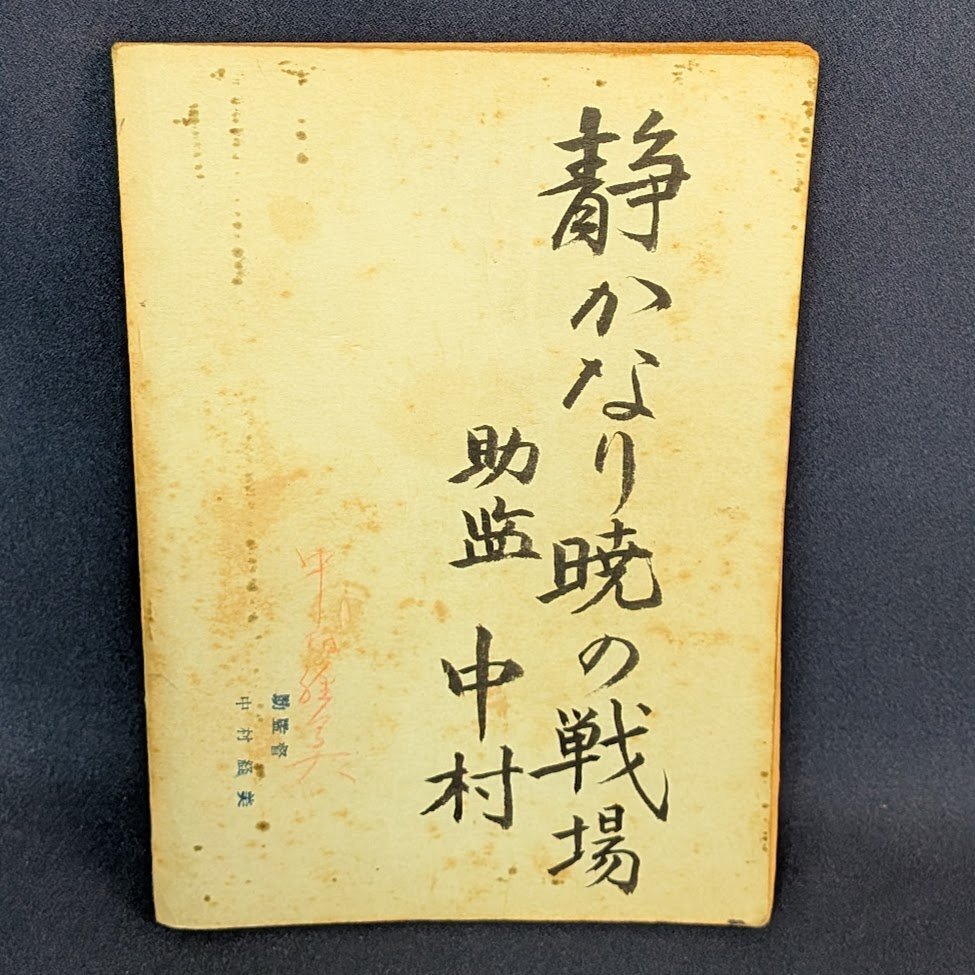 静かなり暁の戦場
助監 中村
助監督
中村